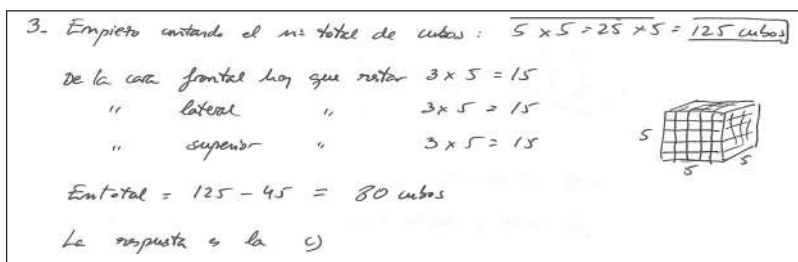 3. Empiezo contando el nº total de cubos: 5 x 5 = 25 x 5 = 125 cubos
De la cara frontal hay que restar 3 x 5 = 15
" lateral " 3 x 5 = 15
" superior " 3 x 5 = 15
5
5
5
En total = 125 - 45 = 80 cubos
La respuesta es la c)